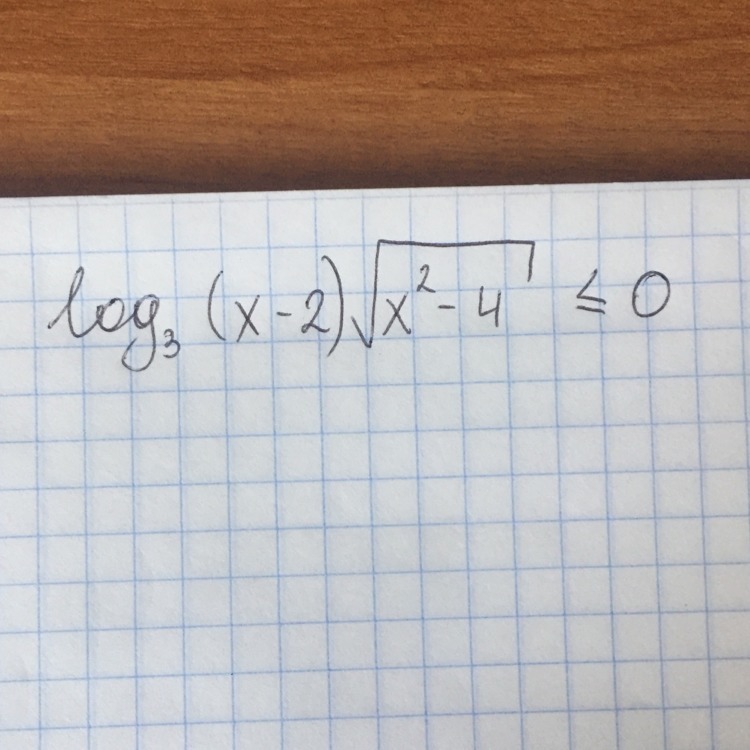 log₃ (x-2)√(x²-4) ≤ 0